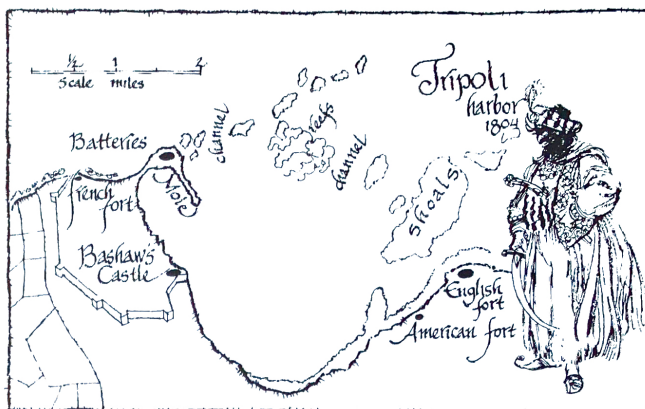 1/2 1 2
Scale miles
Tripoli
harbor
1804
Batteries
channel
reefs
channel
french
fort
Mole
Shoals
Bashaw's
Castle
English
fort
American fort